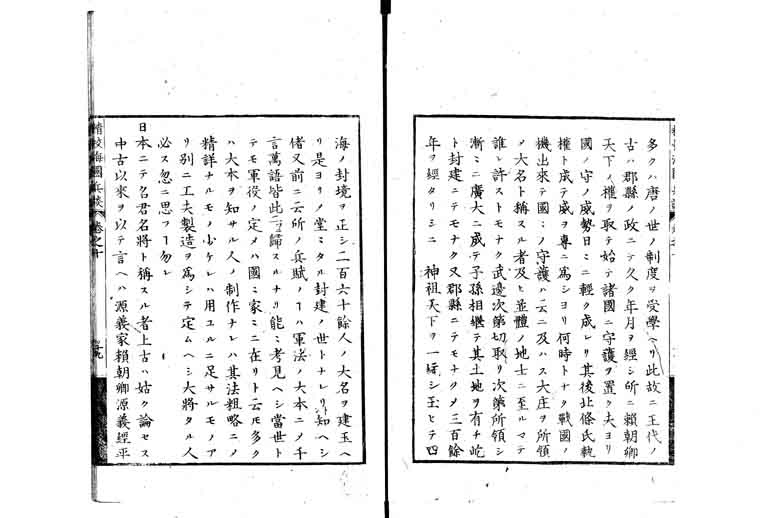 多クハ唐ノ世ノ制度ヲ受學ヘリ此故ニ王代ノ
古ハ郡縣ノ政ニテ久ク年月ヲ經シ所ニ賴朝卿
天下ノ權ヲ取テ始テ諸國ニ守護ヲ置ク夫ヨリ
國ノ守ノ威勢日ミニ輕ク成レリ其後北條氏執
權ト成テ威ヲ專ニ爲シヨリ何時トナク戰國ノ
機出來テ國ミノ守護ハ云ニ及ハス大庄ヲ所領
ノ大名ト稱スル者及ヒ並體ノ地士ニ至ルマテ
誰レ許ストモナク武邊次第切取リ次第所領シ
漸ミニ廣大ニ成テ子孫相繼テ其土地ヲ有チ屹
ト封建ニテモナク又郡縣ニテモナクメ三百餘
年ヲ經タリシニ 神祖天下ヲ一統シ玉ヒテ四
海ノ封境ヲ正シ二百六十餘人ノ大名ヲ建玉ヘ
リ是ヨリノ堂ミタル封建ノ世トナレリ知ヘシ
偖又前ニ云所ノ兵賦ノヿハ軍法ノ大本ニノ千
言萬語皆此ニ歸スルナリ能ミ考見ヘシ當世ト
テモ軍役ノ定メハ國ミ家ミニ在リト云𪜈多ク
ハ大本ヲ知サル人ノ制作ナレハ其法粗略ニノ
精詳ナルモノ少ケレハ用ユルニ足サルモノア
リ別ニ工夫製造ヲ爲シテ定ムヘシ大將タル人
必ス忽ニ思フヿ勿レ
日本ニテ名君名將ト稱スル者上古ハ姑ク論セス
中古以來ヲ以テ言ヘハ源義家賴朝卿源義經平
精校海國兵談 卷之十